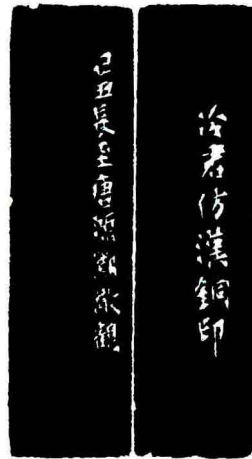 冷君仿漢銅印
己丑長至唐源鄴敬觀